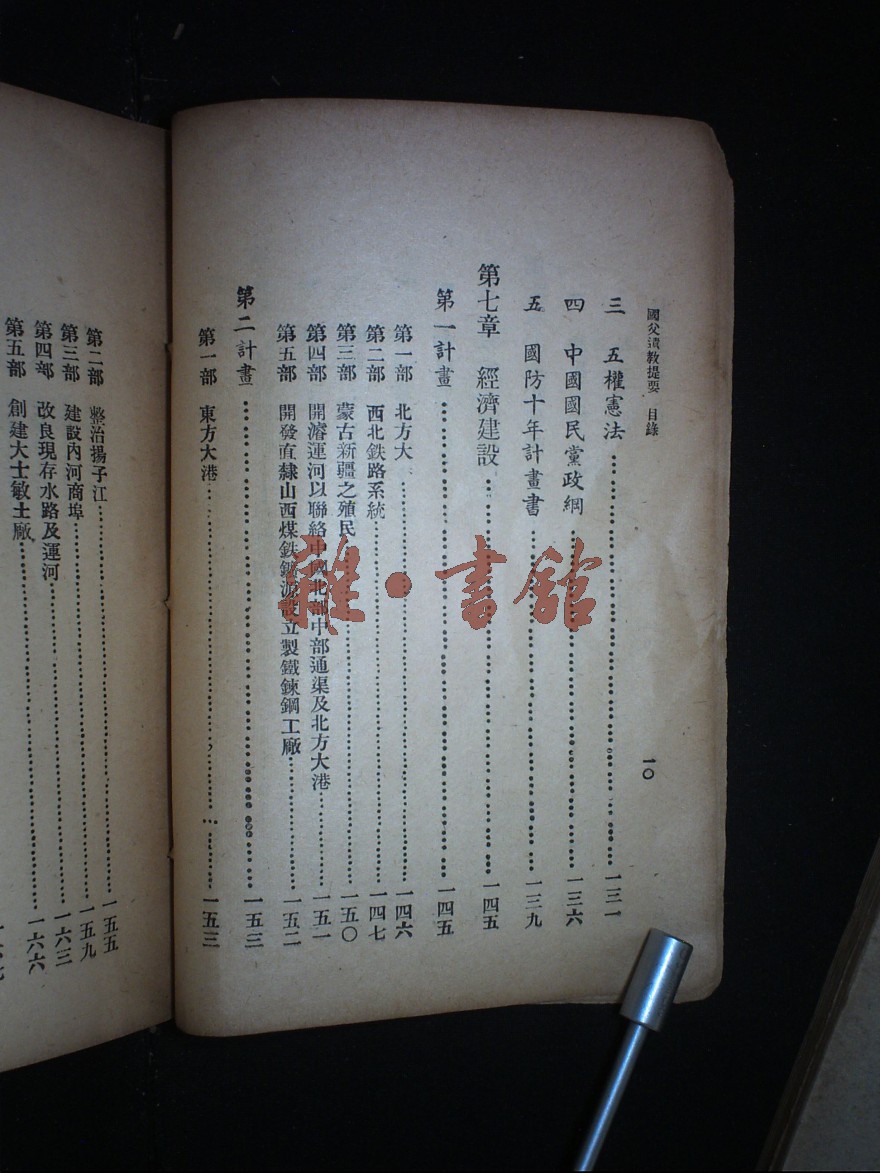 國父遺教提要 目錄
一〇
三 五權憲法 一三一
四 中國國民黨政綱 一三六
五 國防十年計畫書 一三九
第七章 經濟建設 一四五
第一計畫 一四五
第一部 北方大 一四六
第二部 西北鉄路系統 一四七
第三部 蒙古新疆之殖民 一五〇
第四部 開濬運河以聯絡中國北部中部通渠及北方大港 一五一
第五部 開發直隸山西煤鉄鑛源設立製鐵鍊鋼工廠 一五二
第二計畫 一五三
第一部 東方大港 一五三
第二部 整治揚子江 一五五
第三部 建設內河商埠 一五九
第四部 改良現存水路及運河 一六三
第五部 創建大士敏土廠 一六六
雜·書館